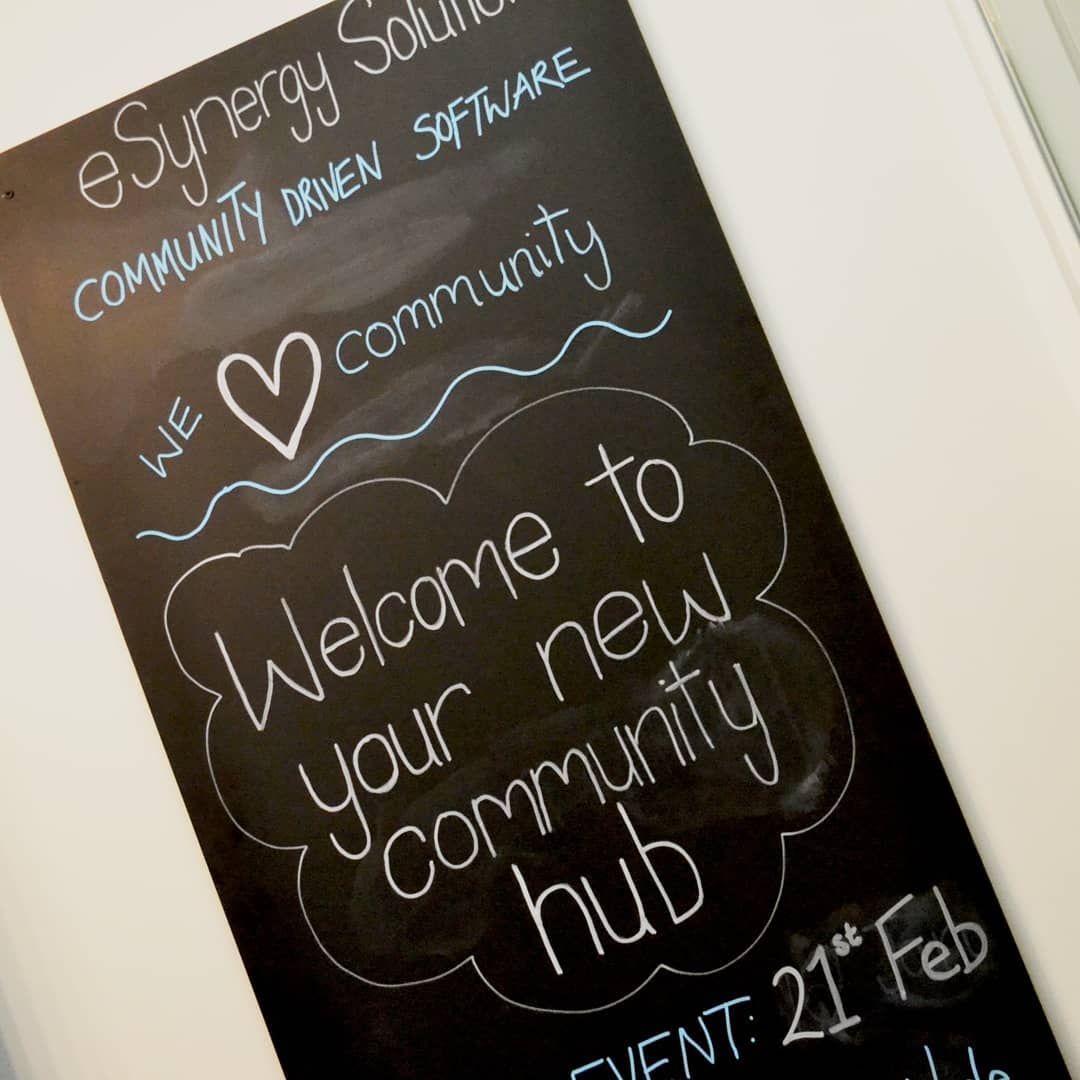 eSynergy
COMMUNITY DRIVEN SOFTWARE
WE ♡ community
Welcome to
your new
community
hub
EVENT: 21st Feb